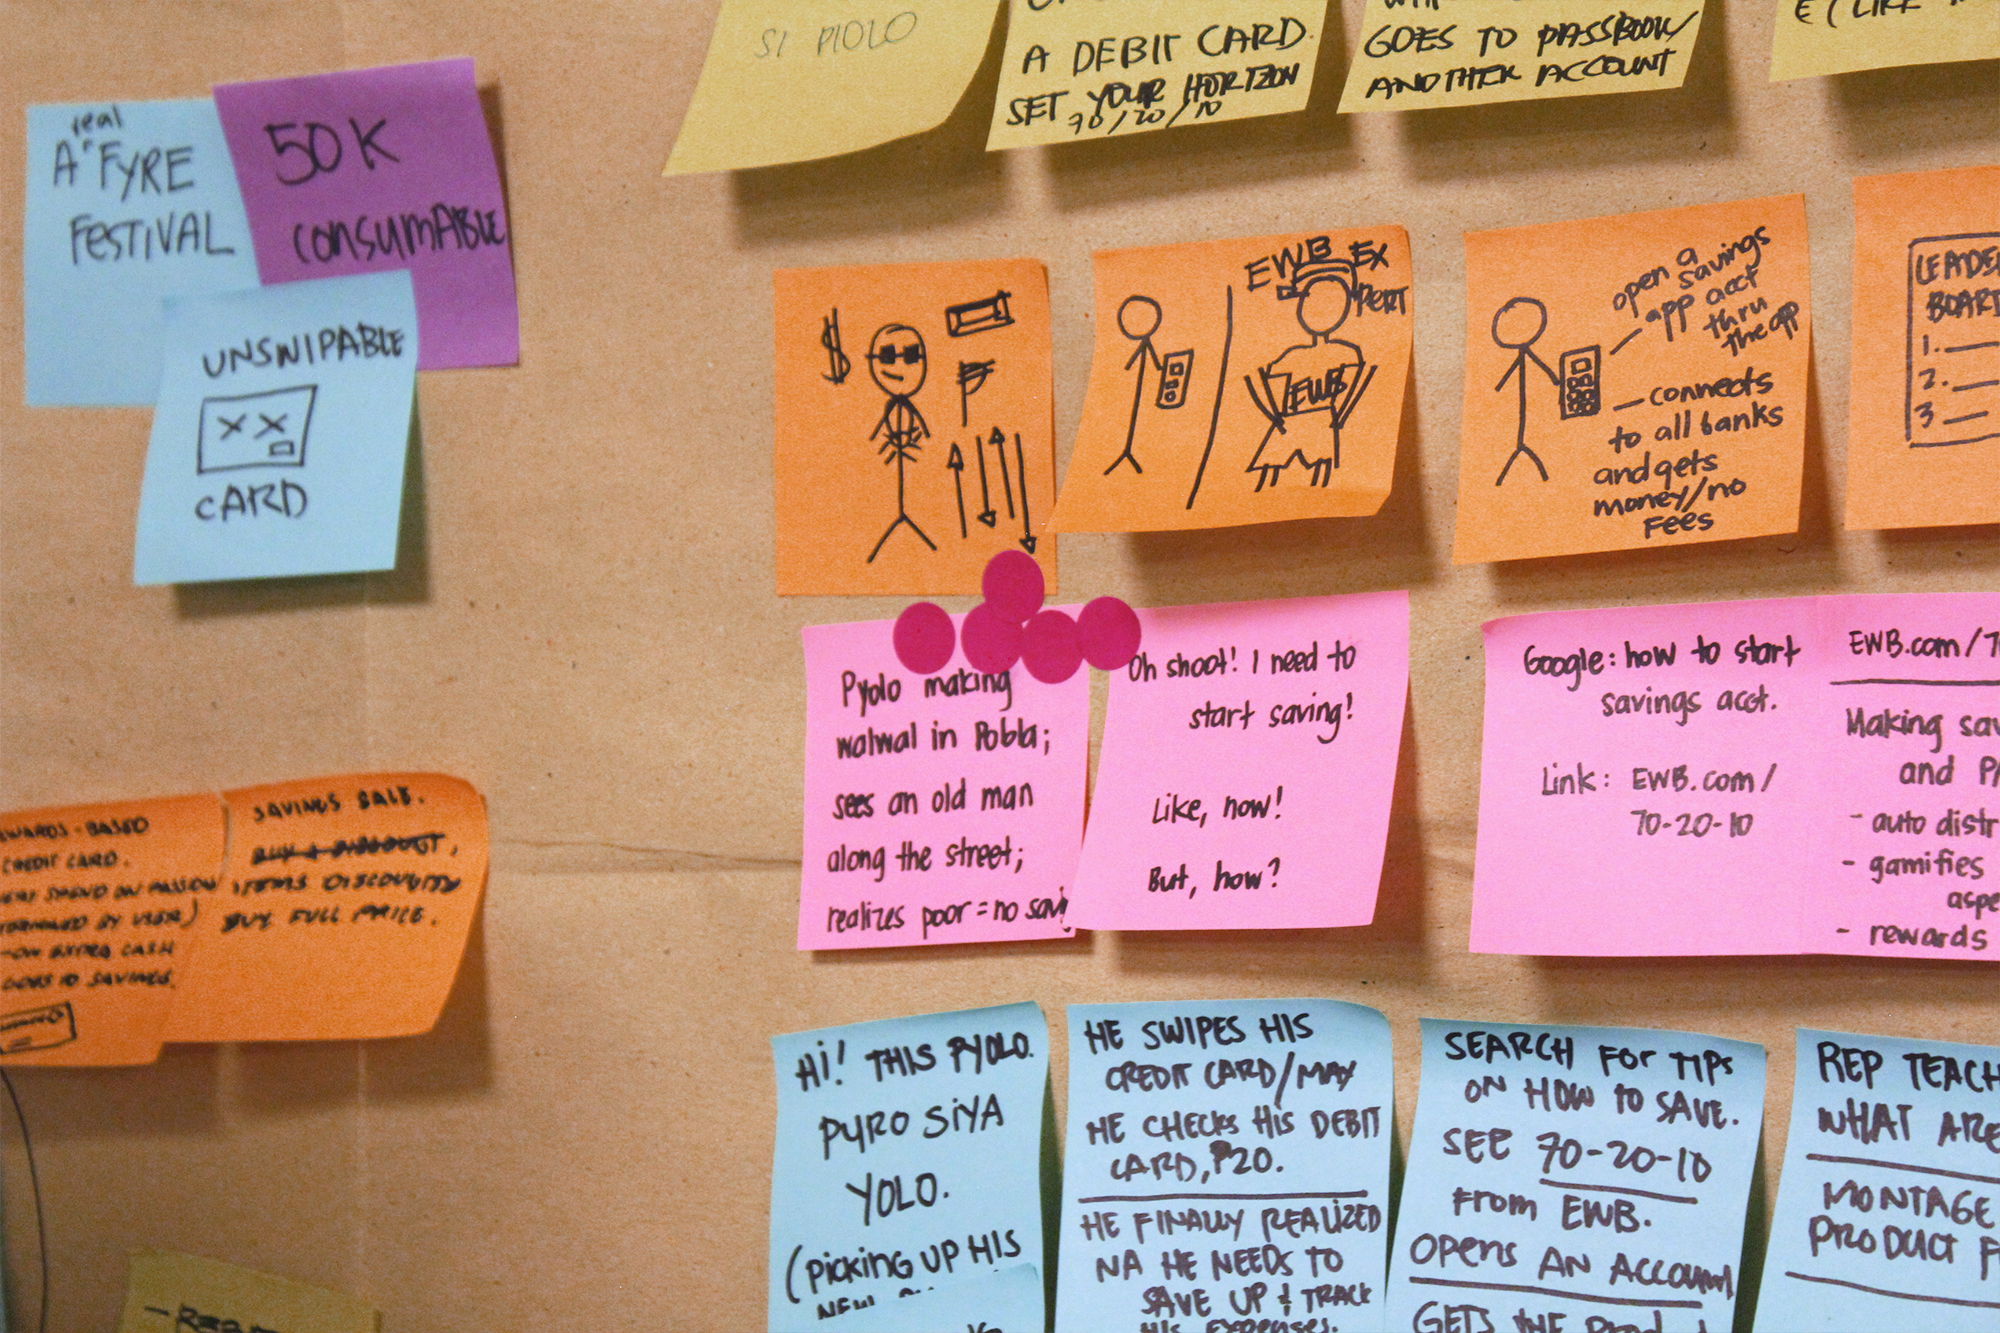 SI PIOLO
A DEBIT CARD.
SET YOUR HORIZON
70/20/10
GOES TO PASSBOOK/
ANOTHER ACCOUNT
E (LIKE
real
A FYRE
FESTIVAL
50K
CONSUMABLE
UNSWIPABLE
CARD
$
EWB EX
PERT
EWB
open a
savings
app acct
thru
the app
— connects
to all banks
and gets
money/no
Fees
LEADE
BOARD
1. —
2. —
3 —
Pyolo making
walwal in Pobla;
sees an old man
along the street;
realizes poor = no savi
Oh shoot! I need to
start saving!
Like, now!
But, how?
Google: how to start
savings acct.
Link: EWB.com/
70-20-10
EWB.com/7
Making sav
and P
- auto distr
- gamifies
aspe
- rewards
WARDS-BASED
CREDIT CARD.
GOES TO SAVINGS.
SAVINGS
BUY FULL PRICE.
Hi! THIS PYOLO.
PYRO SIYA
YOLO.
(PICKING UP HIS
NEW
HE SWIPES HIS
CREDIT CARD/MAX
HE CHECKS HIS DEBIT
CARD, ₱20.
HE FINALLY REALIZED
NA HE NEEDS TO
SAVE UP & TRACK
HIS EXPENSES.
SEARCH FOR TIPS
ON HOW TO SAVE.
SEE 70-20-10
FROM EWB.
OPENS AN ACCOUNT
GETS THE
REP TEACH
WHAT ARE
MONTAGE
PRODUCT F